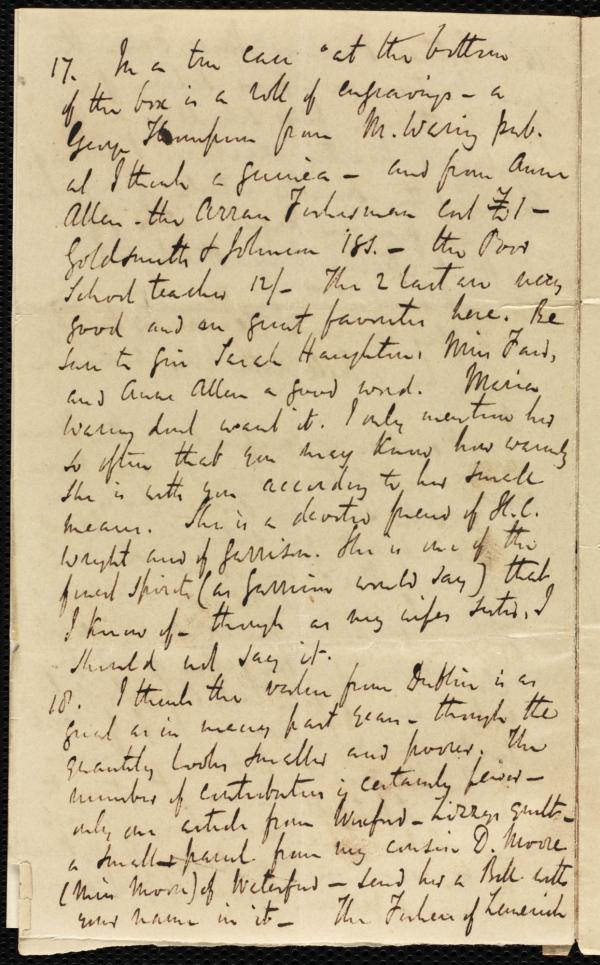 17. In a tin case "at the bottom
of the box is a roll of engravings - a
George Thompson from M. Waring pub.
at I think a guinea - and from Anne
Allen - the Arran Fisherman cost £1 -
Goldsmith & Johnson 18s. - the Poor
School teacher 12/- The 2 last are very
good and are great favorites here. Be
sure to give Sarah Haughton, Miss
and Anne Allen a good word. Maria
Waring dont want it. I only mention her
so often that you may know how warmly
she is with you according to her small
means. She is a devoted friend of H.C.
Wright and of Garrison. She is one of the
finest spirits (as Garrison would say) that
I know of - though as my wifes sister, I
should not say it.
18. I think the value from Dublin is as
great as in many past years - though the
quantity looks smaller and poorer. The
number of contributors is certainly fewer -
only one article from Wexford - Lizzys quilt -
a small parcel from my cousin D. Moore
(Miss Moore) of Waterford - send her a Bell with
your name in it - The of Limerick